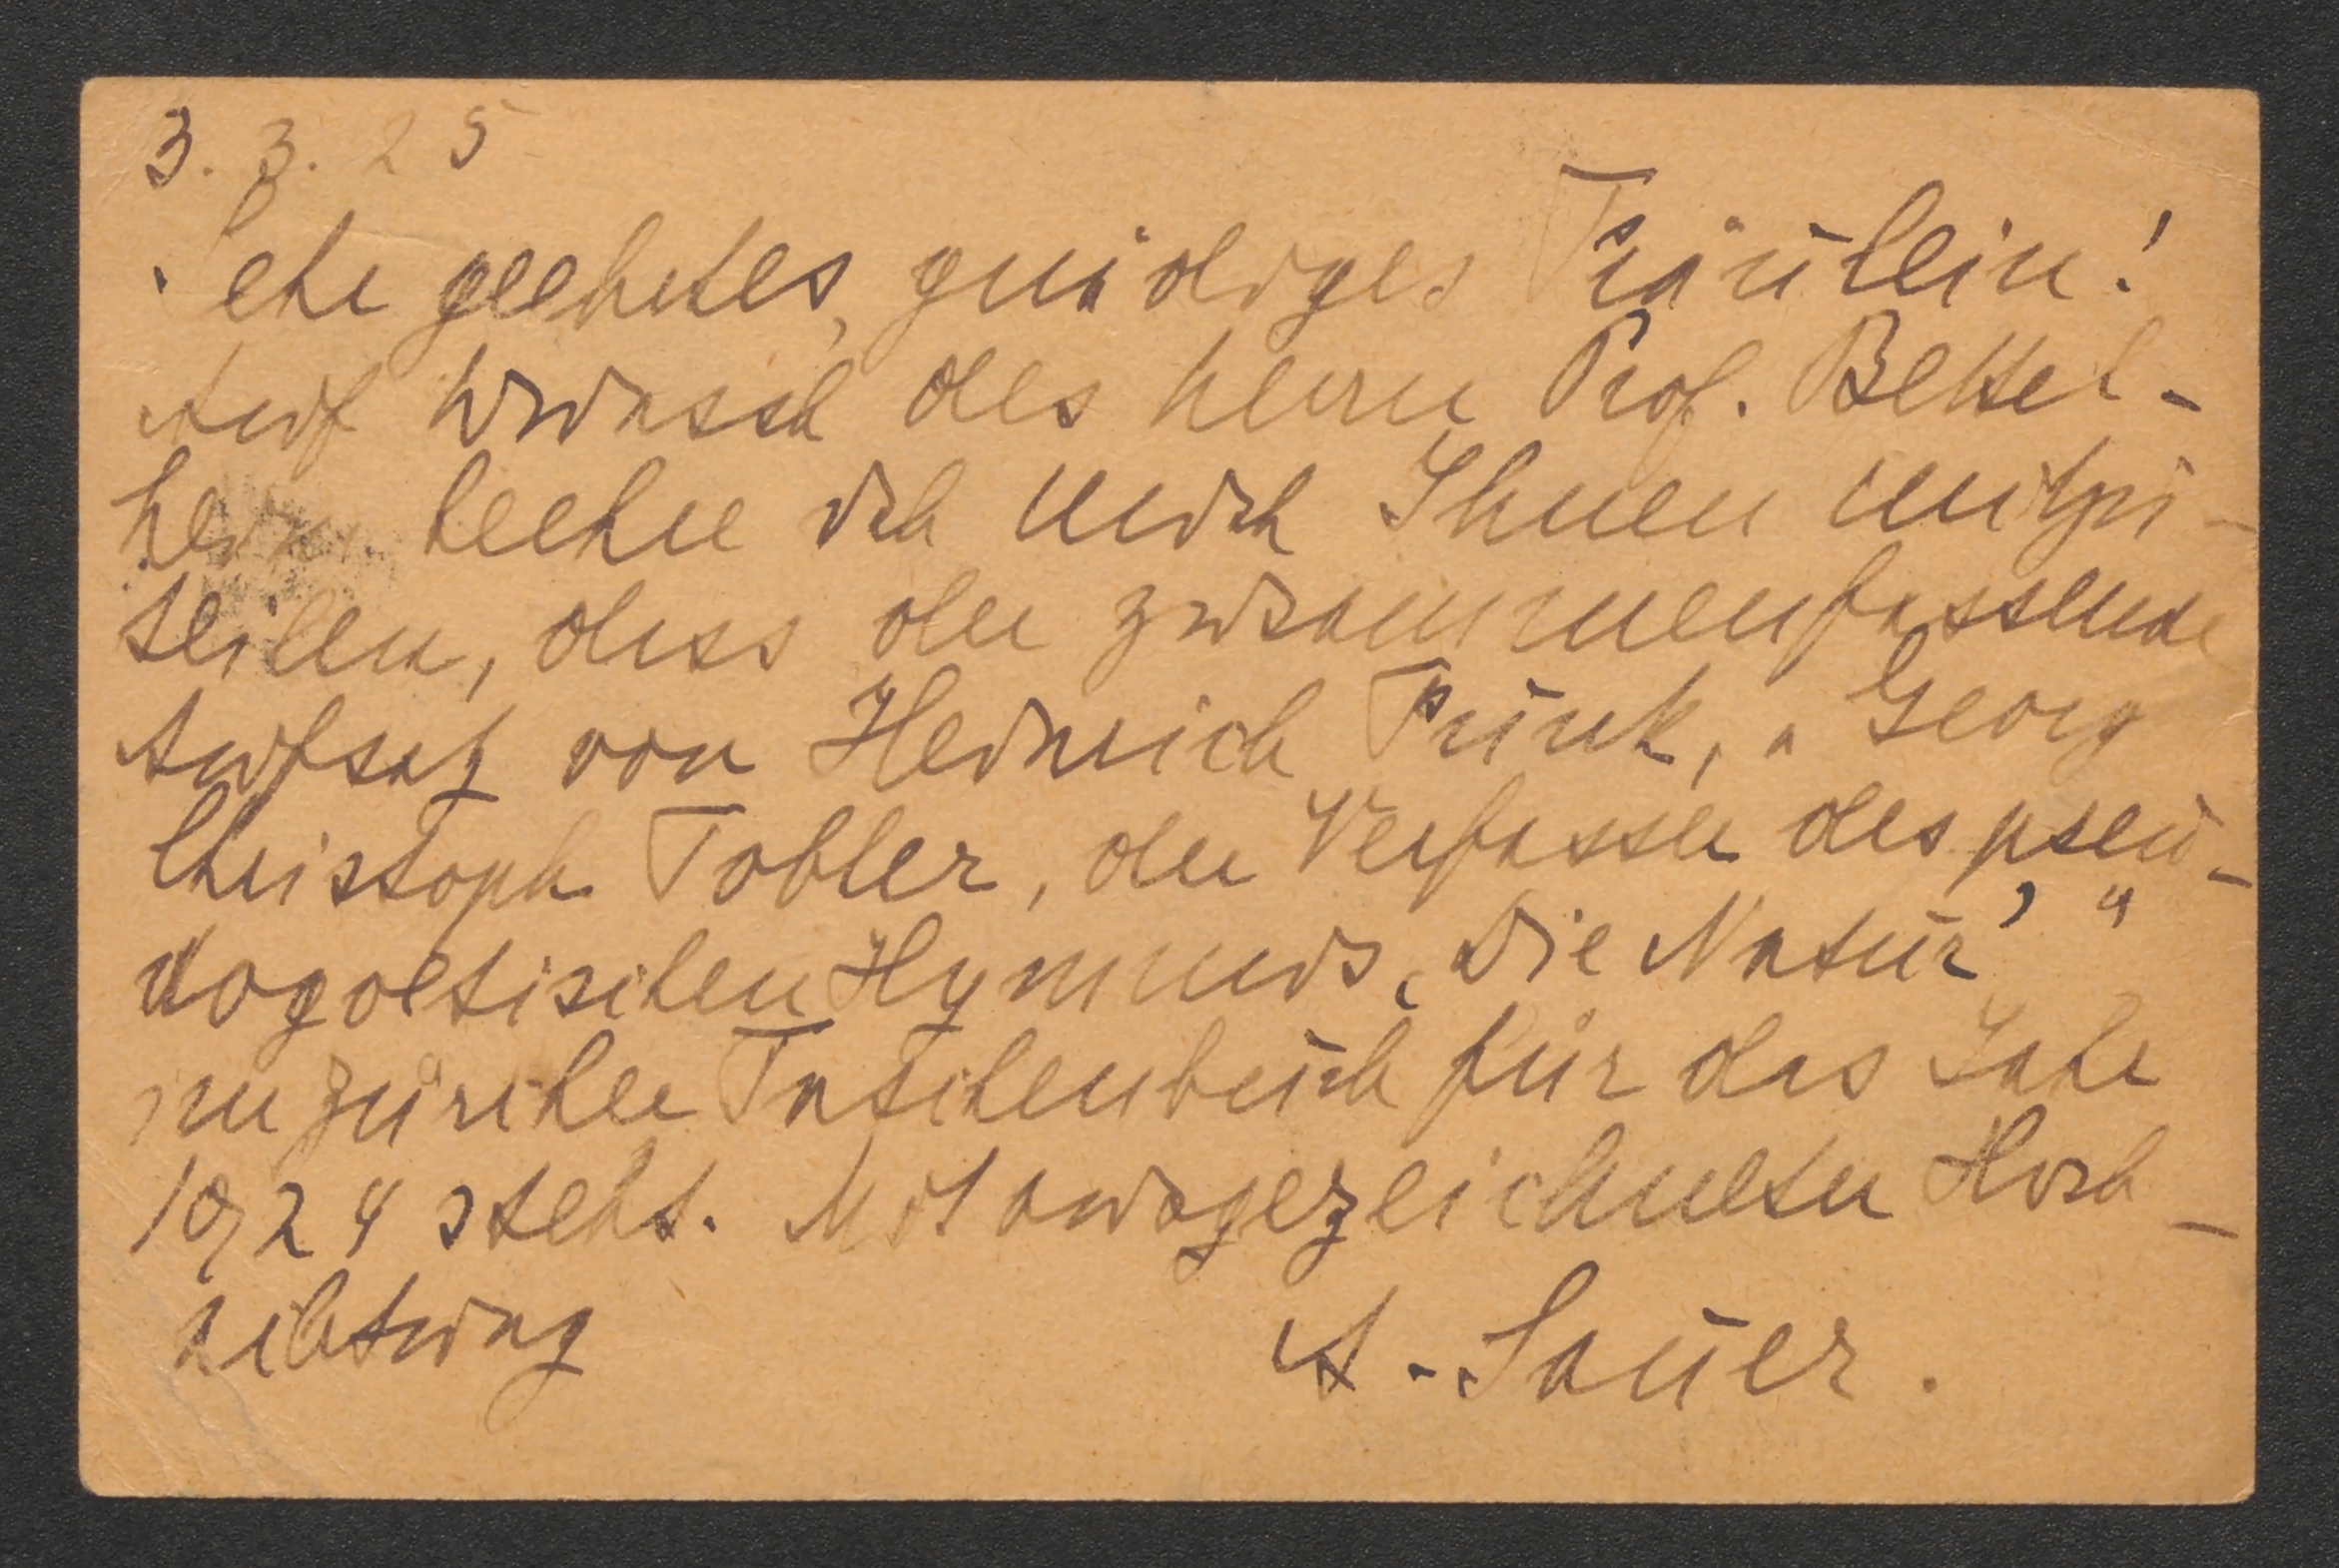 3. 3. 25
Sehr geehrtes, gnädiges Fräulein!
Auf Wunsch des Herrn Prof. Bettel-
heim beehre ich mich Ihnen mitzu-
teilen, dass der zusammenfassende
Aufsatz von Heinrich Funk, „Georg
Christoph Tobler, der Verfasser des pseu-
dogoetischen Hymnus ‚Die Natur'"
im Züricher Taschenbuch für das Jahr
1924 steht. Mit ausgezeichneter Hoch-
achtung
A. Sauer.